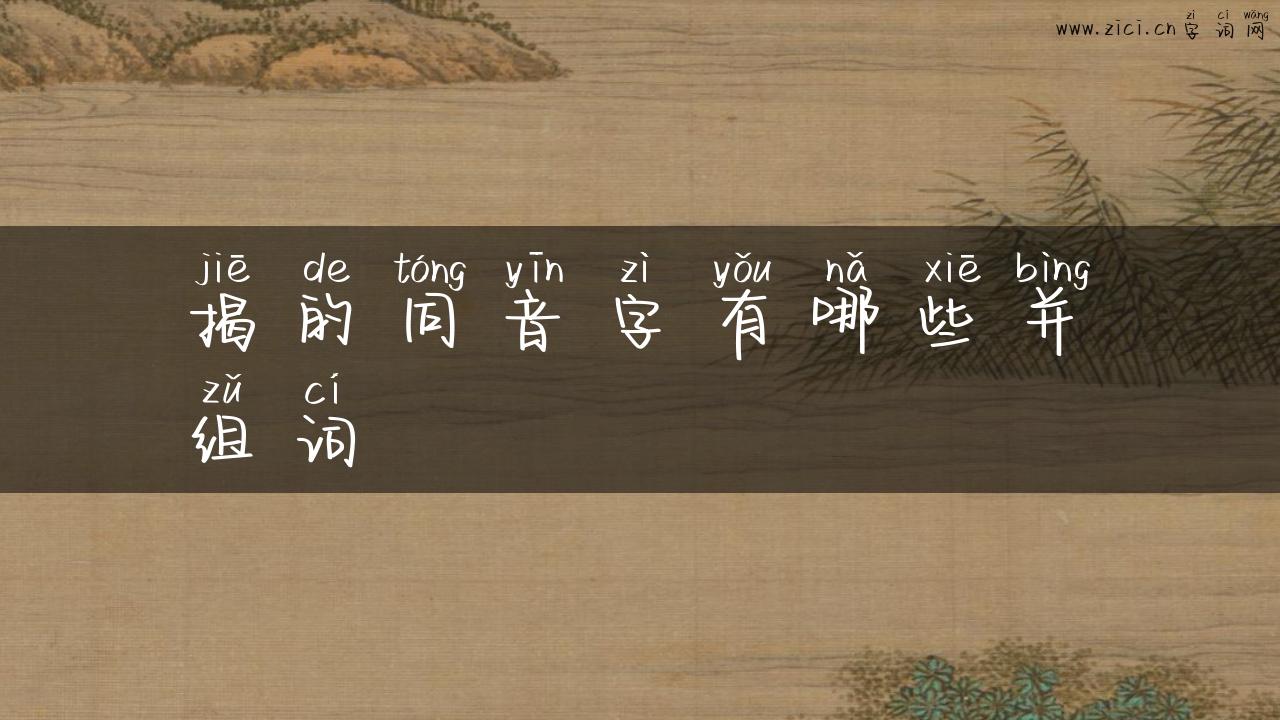 zì cí wǎng
www.zici.cn 字词网
jiē de tóng yīn zì yǒu nǎ xiē bìng
揭的同音字有哪些并
zǔ cí
组词